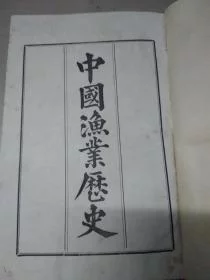 中國漁業歷史